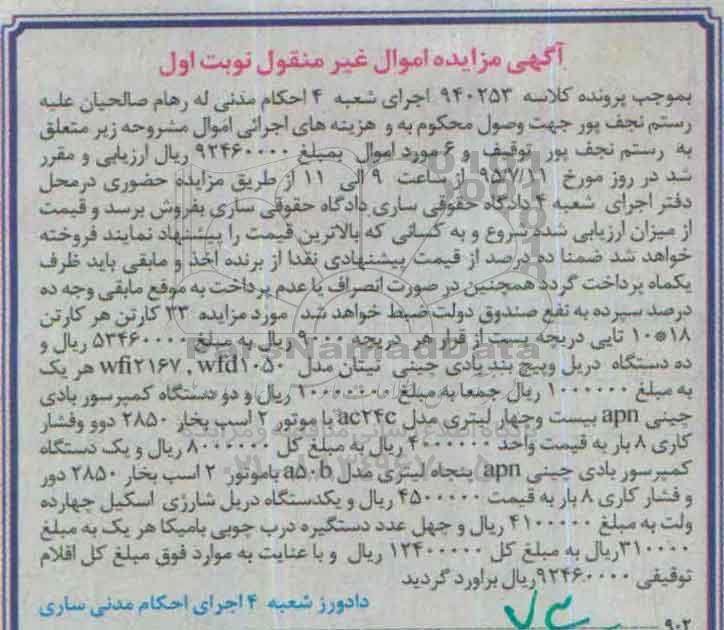 آگهی مزایده اموال غیر منقول نوبت اول
بموجب پرونده کلاسه ۹۴۰۲۵۳ اجرای شعبه ۴ احکام مدنی له رهام صالحیان علیه
رستم نجف پور جهت وصول محکوم به و هزینه های اجرائی اموال مشروحه زیر متعلق
به رستم نجف پور توقیف و ۶ مورد اموال بمبلغ ۹۲۴۶۰۰۰۰ ریال ارزیابی و مقرر
شد در روز مورخ ۹۵/۷/۱۱ از ساعت ۹ الی ۱۱ از طریق مزایده حضوری درمحل
دفتر اجرای شعبه ۴ دادگاه حقوقی ساری دادگاه حقوقی ساری بفروش برسد و قیمت
از میزان ارزیابی شده شروع و به کسانی که بالاترین قیمت را پیشنهاد نمایند فروخته
خواهد شد ضمنا ده درصد از قیمت پیشنهادی نقدا از برنده اخذ و مابقی باید ظرف
یکماه پرداخت گردد همچنین در صورت انصراف یا عدم پرداخت به موقع مابقی وجه ده
درصد سپرده به نفع صندوق دولت ضبط خواهد شد مورد مزایده ۳۳ کارتن هر کارتن
۱۸*۱۰ تایی دریچه پست از قرار هر دریچه ۹۰۰۰ ریال به مبلغ ۵۳۴۶۰۰۰۰ ریال و
ده دستگاه دریل وپیچ بند بادی چینی نیتان مدل wfi۲۱۶۷ , wfd۱۰۵۰ هر یک
به مبلغ ۱۰۰۰۰۰۰ ریال جمعا به مبلغ ۱۰۰۰۰۰۰۰ ریال و دو دستگاه کمپرسور بادی
چینی apn بیست وچهار لیتری مدل ac۲۴c با موتور ۲ اسب بخار ۲۸۵۰ دوو وفشار
کاری ۸ بار به قیمت واحد ۴۰۰۰۰۰۰ ریال به مبلغ کل ۸۰۰۰۰۰۰ ریال و یک دستگاه
کمپرسور بادی چینی apn پنجاه لیتری مدل a۵۰b باموتور ۲ اسب بخار ۲۸۵۰ دور
و فشار کاری ۸ بار به قیمت ۴۵۰۰۰۰۰ ریال و یکدستگاه دریل شارژی اسکیل چهارده
ولت به مبلغ ۴۱۰۰۰۰۰ ریال و چهل عدد دستگیره درب چوبی بامیکا هر یک به مبلغ
۳۱۰۰۰۰ریال به مبلغ کل ۱۲۴۰۰۰۰۰ ریال و با عنایت به موارد فوق مبلغ کل اقلام
توقیفی ۹۲۴۶۰۰۰۰ریال براورد گردید
دادورز شعبه ۴ اجرای احکام مدنی ساری
۹۰۲
ParsNamadData